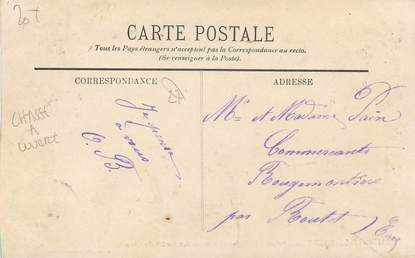 20T
CARTE POSTALE
Tous les Pays étrangers n'acceptent pas la Correspondance au recto.
(Se renseigner à la Poste).
CORRESPONDANCE
ADRESSE
CHASSE
A
COURRE
Je pense
à vous
C. B.
Mr et Madame Pain
Commercants
Rougemontiers
par Routot
Eure